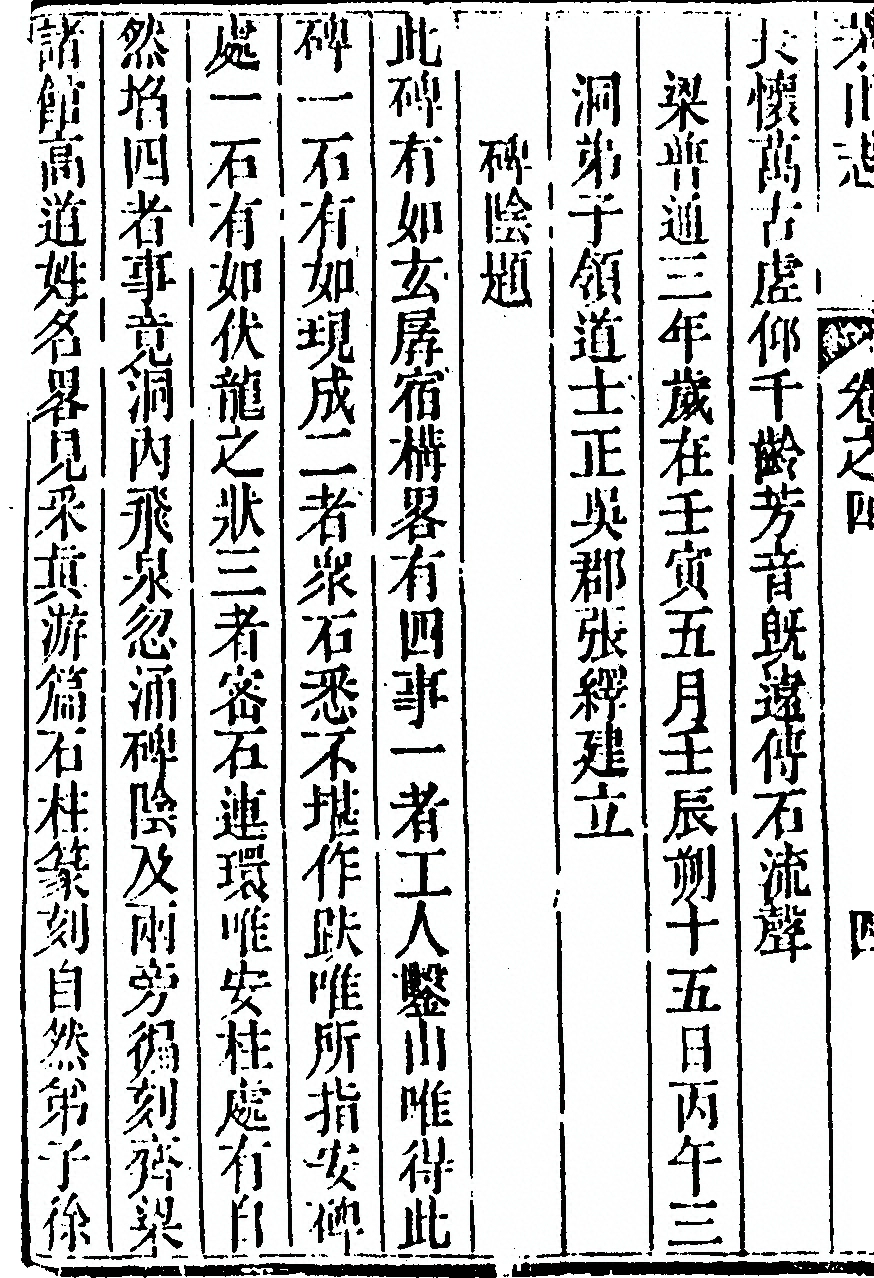 茅山志 卷之四 四
長懷萬古虛仰千齡芳音旣遠傳石流聲
梁普通三年歲在壬寅五月壬辰朔十五日丙午三
洞弟子領道士正吳郡張繹建立
碑陰題
此碑有如玄孱宿構畧有四事一者工人鑿山唯得此
碑一石有如現成二者衆石悉不堪作趺唯所指安碑
處一石有如伏龍之狀三者密石連環唯安柱處有自
然埳四者事竟洞內飛泉忽涌碑陰及兩旁徧刻齊梁
諸館高道姓名畧見采真游篇石柱篆刻自然弟子徐